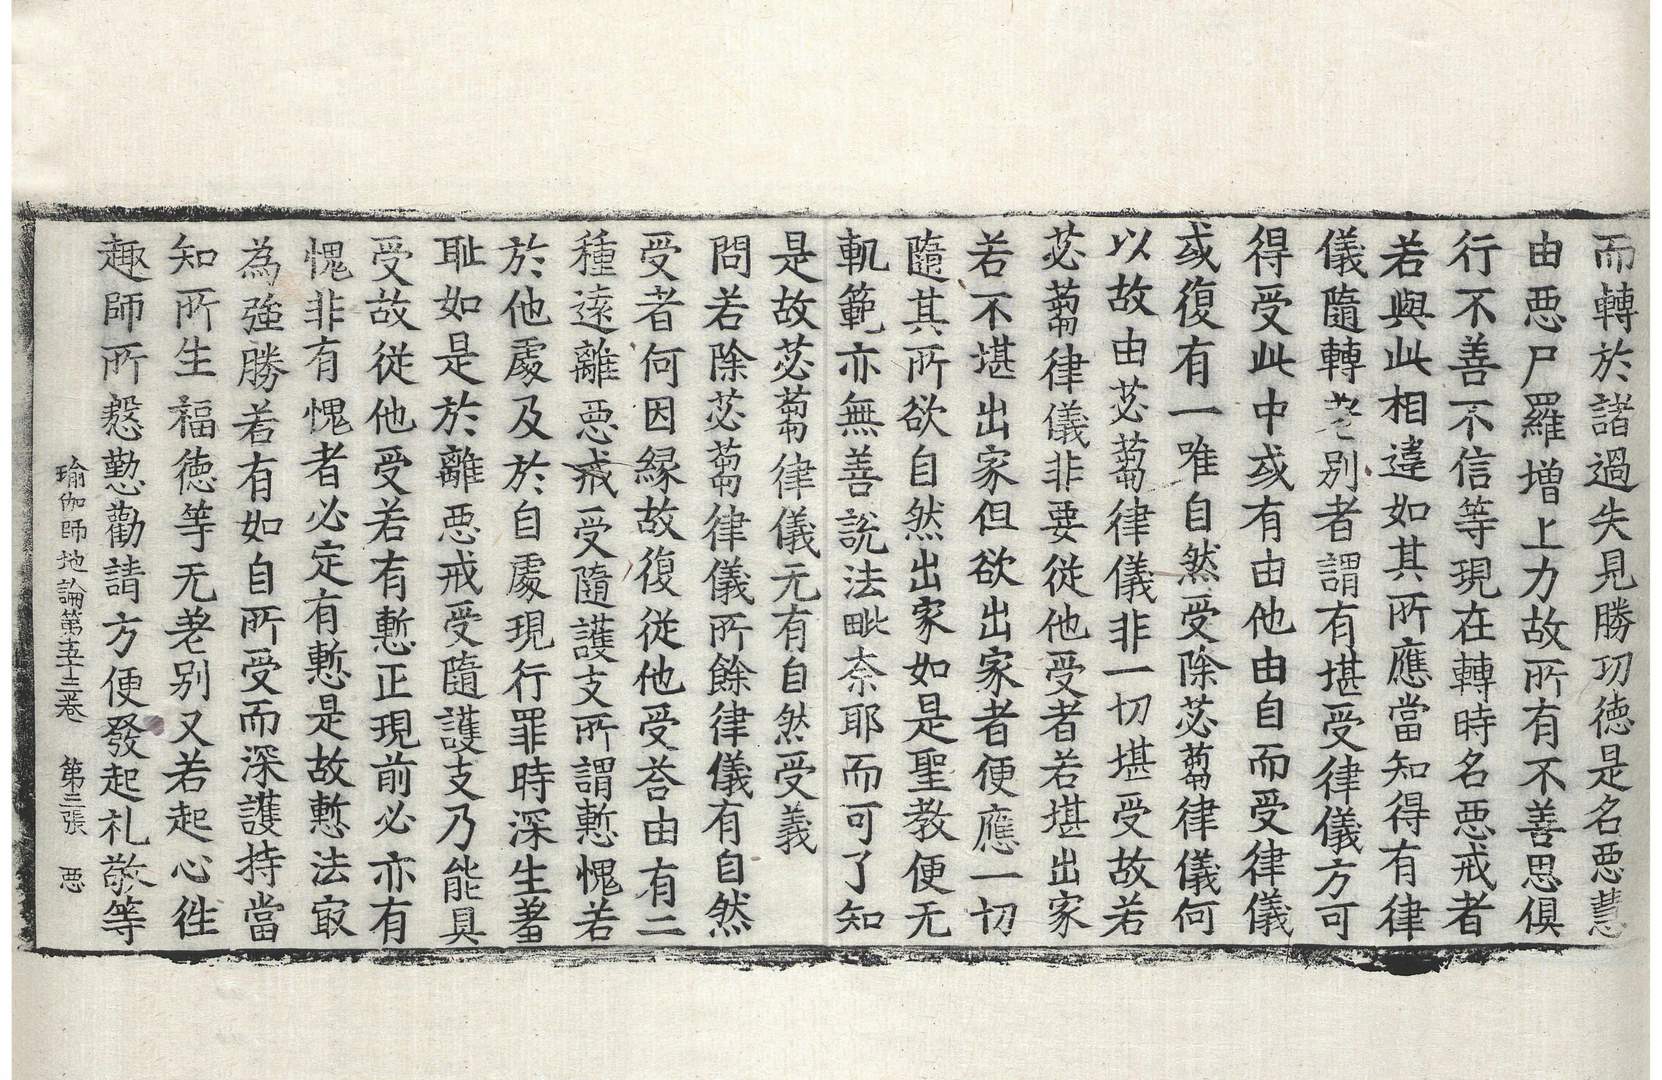 而轉於諸過失見勝功徳是名惡慧
由惡尸羅增上力故所有不善思俱
行不善不信等現在轉時名惡戒者
若與此相違如其所應當知得有律
儀隨轉差别者謂有堪受律儀方可
得受此中或有由他由自而受律儀
或復有一唯自然受除苾蒭律儀何
以故由苾蒭律儀非一切堪受故若
苾蒭律儀非要從他受者若堪出家
若不堪出家但欲出家者便應一切
隨其所欲自然出家如是聖教便无
軌範亦無善說法毗奈耶而可了知
是故苾蒭律儀无有自然受義
問若除苾蒭律儀所餘律儀有自然
受者何因縁故復從他受荅由有二
種遠離惡戒受隨護支所謂慙愧若
於他處及於自處現行罪時深生羞
耻如是於離惡戒受隨護支乃能具
受故從他受若有慙正現前必亦有
愧非有愧者必定有慙是故慙法㝡
為強勝若有如自所受而深護持當
知所生福徳等无差别又若起心往
趣師所慇懃勸請方便發起礼敬等
瑜伽師地論第五十三卷　第三張　惡